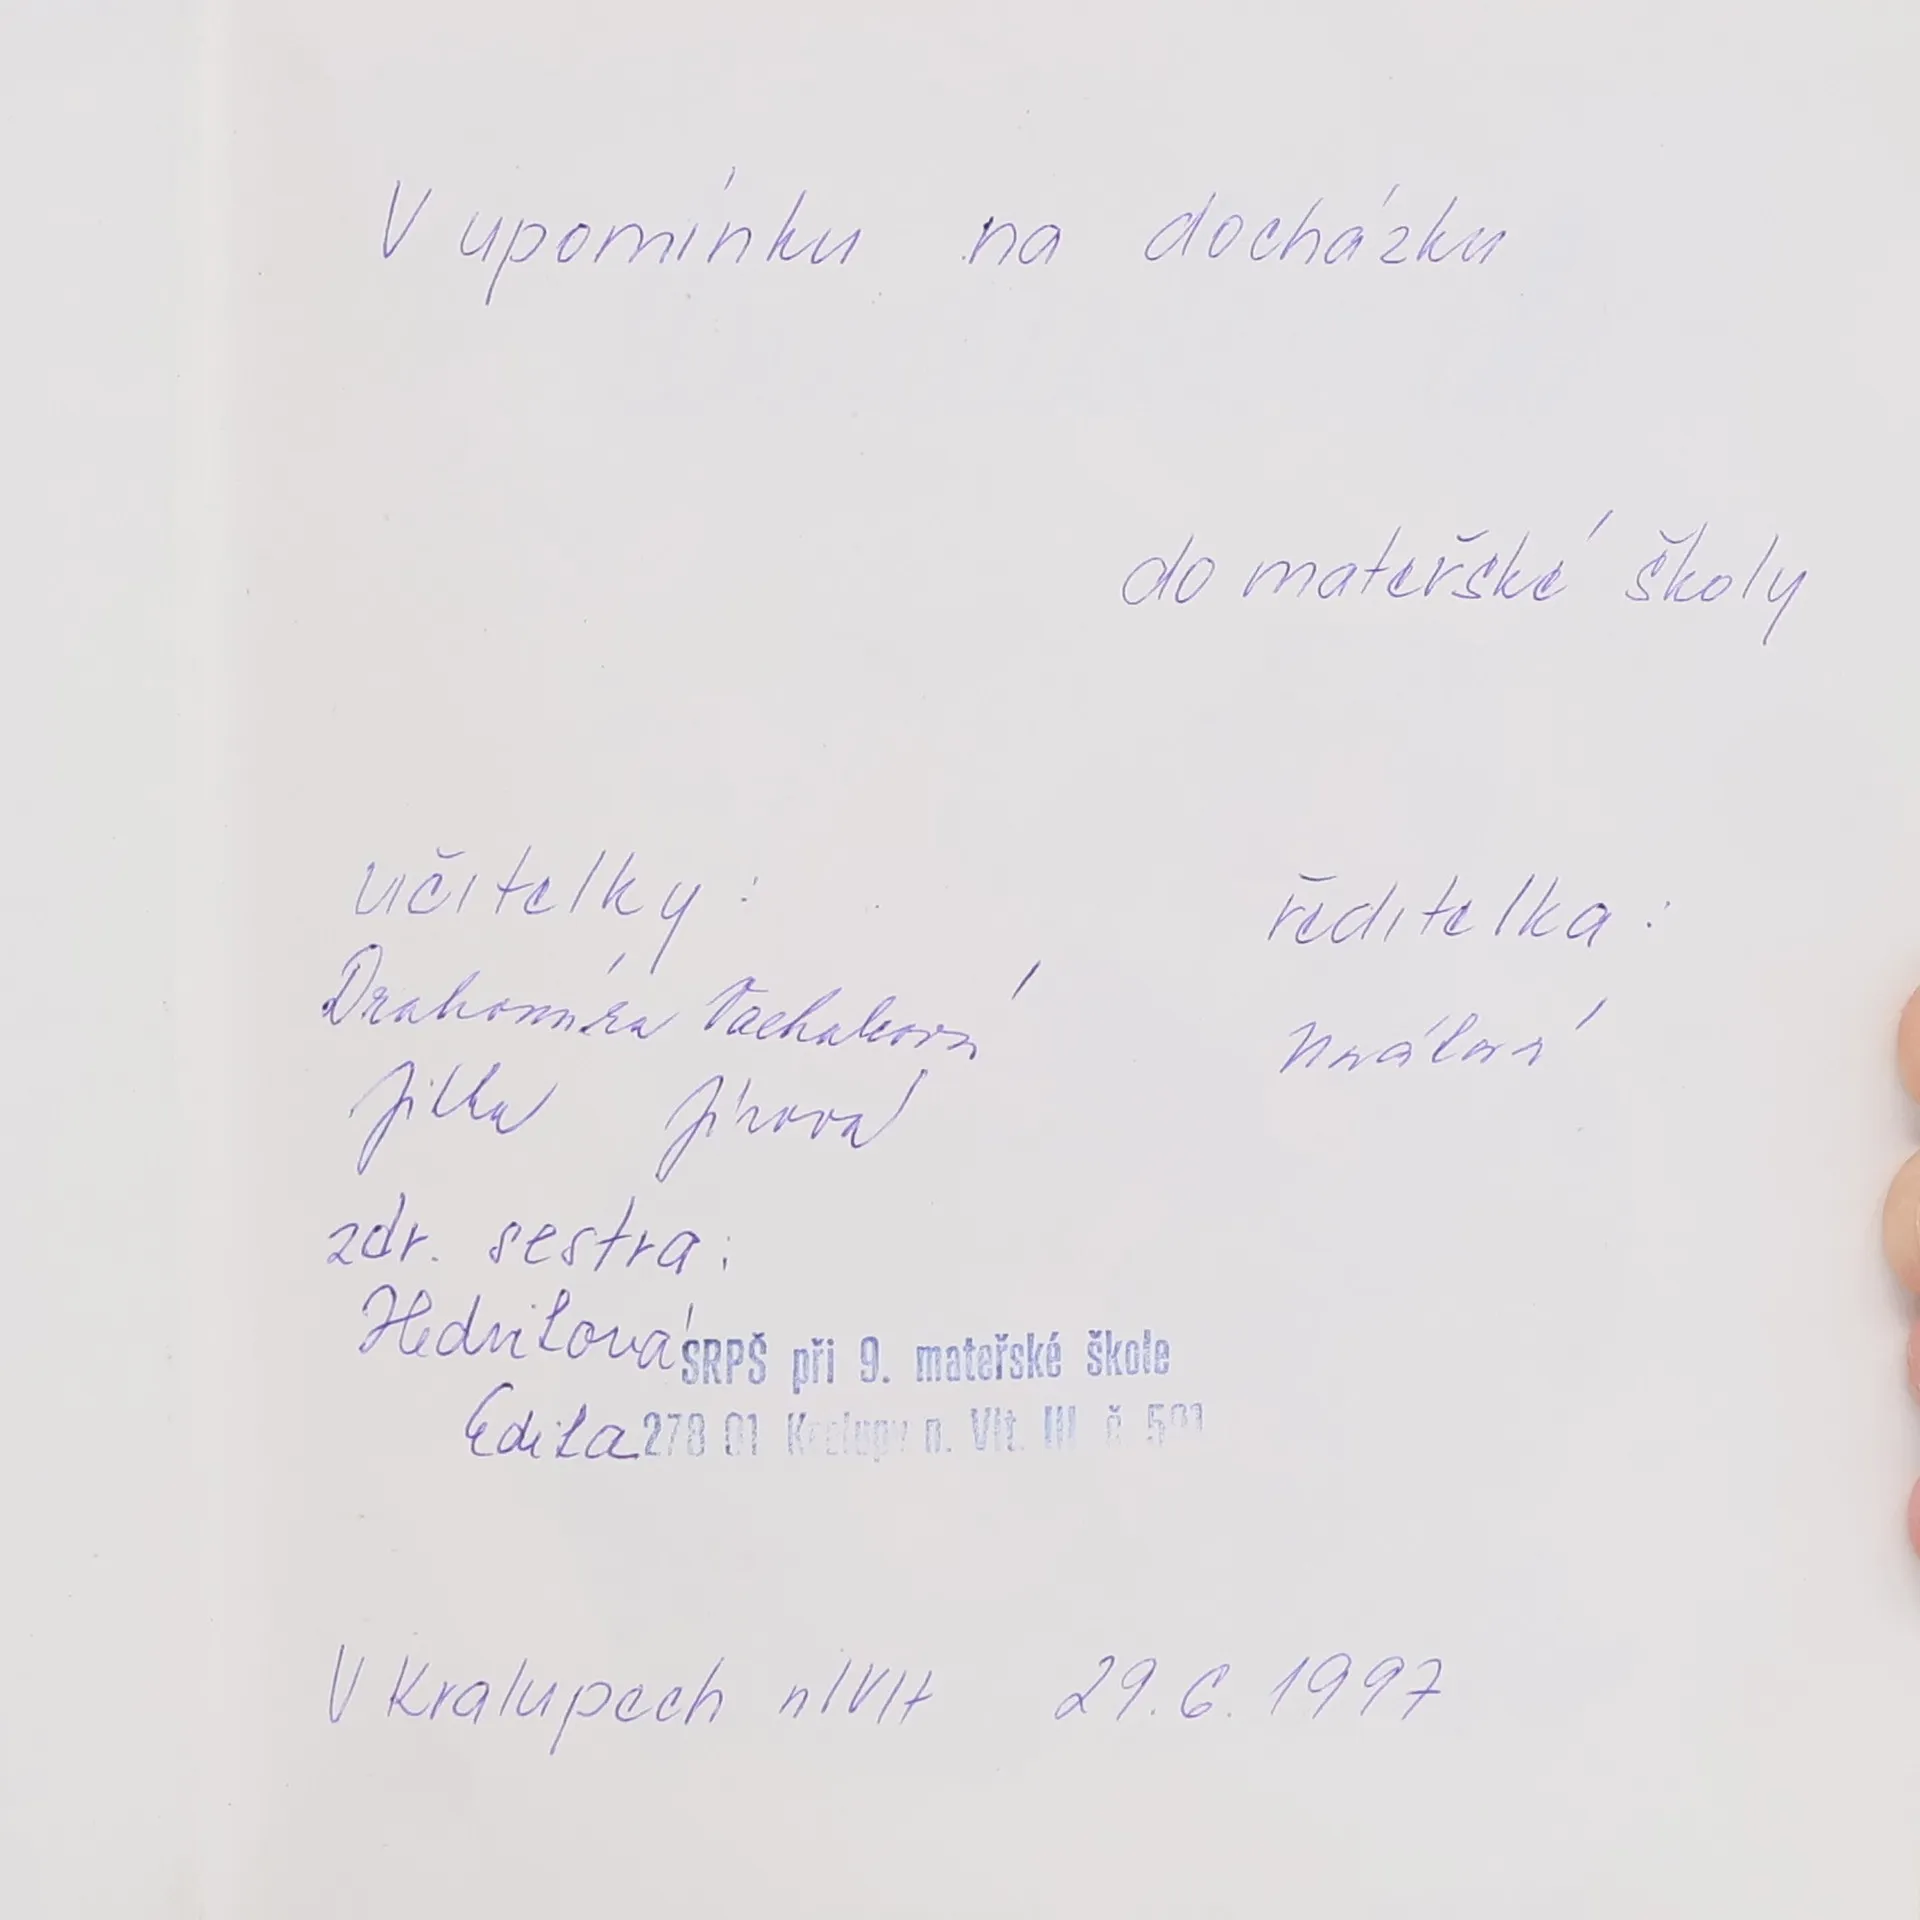 V upomínku na docházku
do mateřské školy
učitelky:
ředitelka:
Drahomíra
Jitka Jírová
zdr. sestra:
Hedvitová
Edita
SRPŠ při 9. mateřské škole
278 01 Kralupy n. Vlt. III č.
V Kralupech n/Vlt 29.6.1997